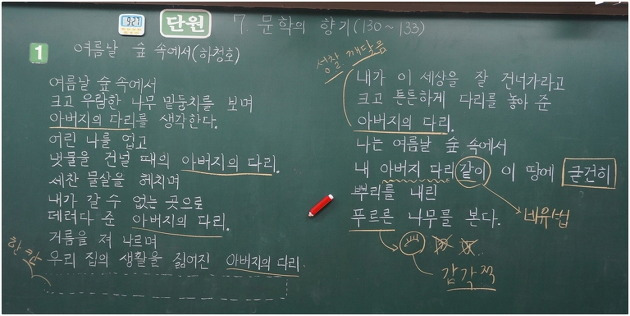 9:27
단원
7. 문학의 향기(130~133)
1
여름날 숲 속에서(하청호)
여름날 숲 속에서
크고 우람한 나무 밑둥치를 보며
아버지의 다리를 생각한다.
어린 나를 업고
냇물을 건널 때의 아버지의 다리.
세찬 물살을 헤치며
내가 갈 수 없는 곳으로
데려다 준 아버지의 다리.
거름을 져 나르며
우리 집의 생활을 짊어진 아버지의 다리.
한 칸
성찰 깨달음
내가 이 세상을 잘 건너가라고
크고 튼튼하게 다리를 놓아 준
아버지의 다리.
나는 여름날 숲 속에서
내 아버지 다리 같이 이 땅에 굳건히
뿌리를 내린
푸르른 나무를 본다.
비유법
감각적